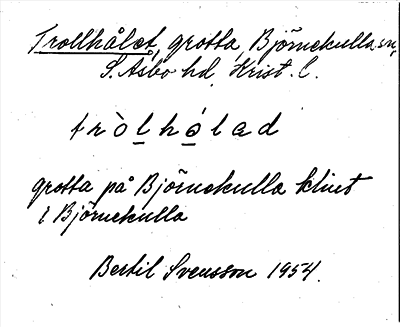 Trollhålet, grotta, Björnekulla sn,
S. Åsbo hd, Krist. l.
tròlhólad
grotta på Björnekulla klint
i Björnekulla
Bertil Svensson 1954.